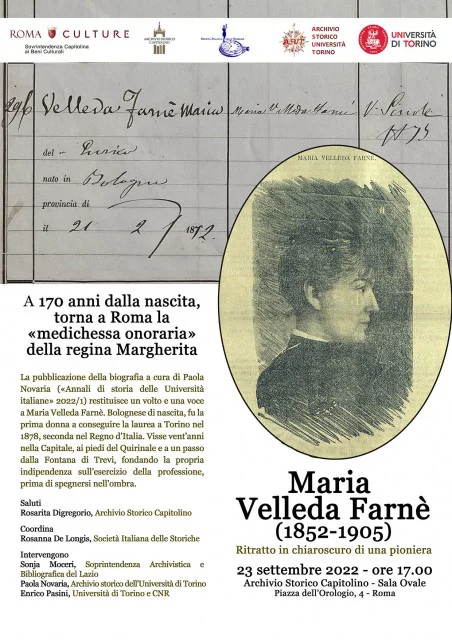 ROMA CULTURE
Sovrintendenza Capitolina
ai Beni Culturali
ARCHIVIO STORICO
CAPITOLINO
ARCHIVIO
STORICO
UNIVERSITÀ
TORINO
UNIVERSITÀ
DI TORINO
296 Velleda Farnè Maria
del
nato in Bologna
provincia di
il 21 2 1852
MARIA VELLEDA FARNÈ.
A 170 anni dalla nascita,
torna a Roma la
«medichessa onoraria»
della regina Margherita
La pubblicazione della biografia a cura di Paola
Novaria («Annali di storia delle Università
italiane» 2022/1) restituisce un volto e una voce
a Maria Velleda Farnè. Bolognese di nascita, fu la
prima donna a conseguire la laurea a Torino nel
1878, seconda nel Regno d'Italia. Visse vent'anni
nella Capitale, ai piedi del Quirinale e a un passo
dalla Fontana di Trevi, fondando la propria
indipendenza sull'esercizio della professione,
prima di spegnersi nell'ombra.
Saluti
Rosarita Digregorio, Archivio Storico Capitolino
Coordina
Rosanna De Longis, Società Italiana delle Storiche
Intervengono
Sonja Moceri, Soprintendenza Archivistica e
Bibliografica del Lazio
Paola Novaria, Archivio storico dell'Università di Torino
Enrico Pasini, Università di Torino e CNR
Maria
Velleda Farnè
(1852-1905)
Ritratto in chiaroscuro di una pioniera
23 settembre 2022 - ore 17.00
Archivio Storico Capitolino - Sala Ovale
Piazza dell'Orologio, 4 - Roma